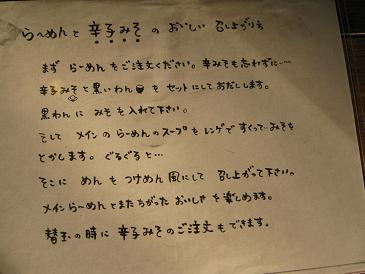 らーめんと 辛子みその おいしい 召し上がり方
まず らーめんをご注文ください。辛みそも忘れずに…
辛子みそと黒いわんを セットにしておだします。
黒わんに みそを入れて下さい。
そして メインのらーめんのスープを レンゲですくって…みそを
とかします。ぐるぐると…
そこに めんを つけめん風にして 召し上がって下さい。
メインらーめんとまたちがった おいしさを楽しめます。
替玉の時に 辛子みそのご注文もできます。